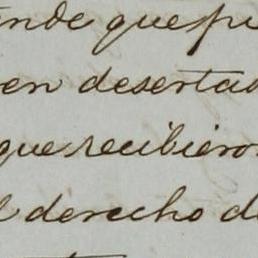 ende que pu
en deserta
que recibiero
l derecho d